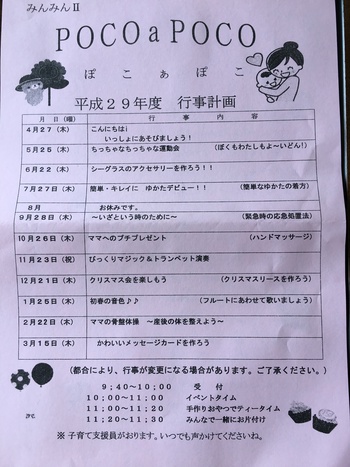 みんみんⅡ
POCO a POCO
ぽ こ ぁ ぽ こ
平成29年度 行事計画
月 日(曜) 行 事 内 容
4月27(木) こんにちは!
いっしょにあそびましょう!
5月25(木) ちっちゃなちっちゃな運動会 (ぼくもわたしもよ~いどん!)
6月22(木) シーグラスのアクセサリーを作ろう!!
7月27日(木) 簡単・キレイに ゆかたデビュー!! (簡単なゆかたの着方)
8月 お休みです。
9月28日(木) ~いざという時のために~ (緊急時の応急処置法)
10月26日(木) ママへのプチプレゼント (ハンドマッサージ)
11月23日(祝) びっくりマジック&トランペット演奏
12月21日(木) クリスマス会を楽しもう (クリスマスリースを作ろう)
1月25日(木) 初春の音色♪♪ (フルートにあわせて歌いましょう)
2月22日(木) ママの骨盤体操 ~産後の体を整えよう~
3月15日(木) かわいいメッセージカードを作ろう
(都合により、行事が変更になる場合があります。ご了承ください。)
9:40~10:00 受 付
10:00~11:00 イベントタイム
11:00~11:20 手作りおやつでティータイム
11:20~11:30 みんなで一緒にお片付け
※ 子育て支援員がおります。いつでも声かけてくださいね。